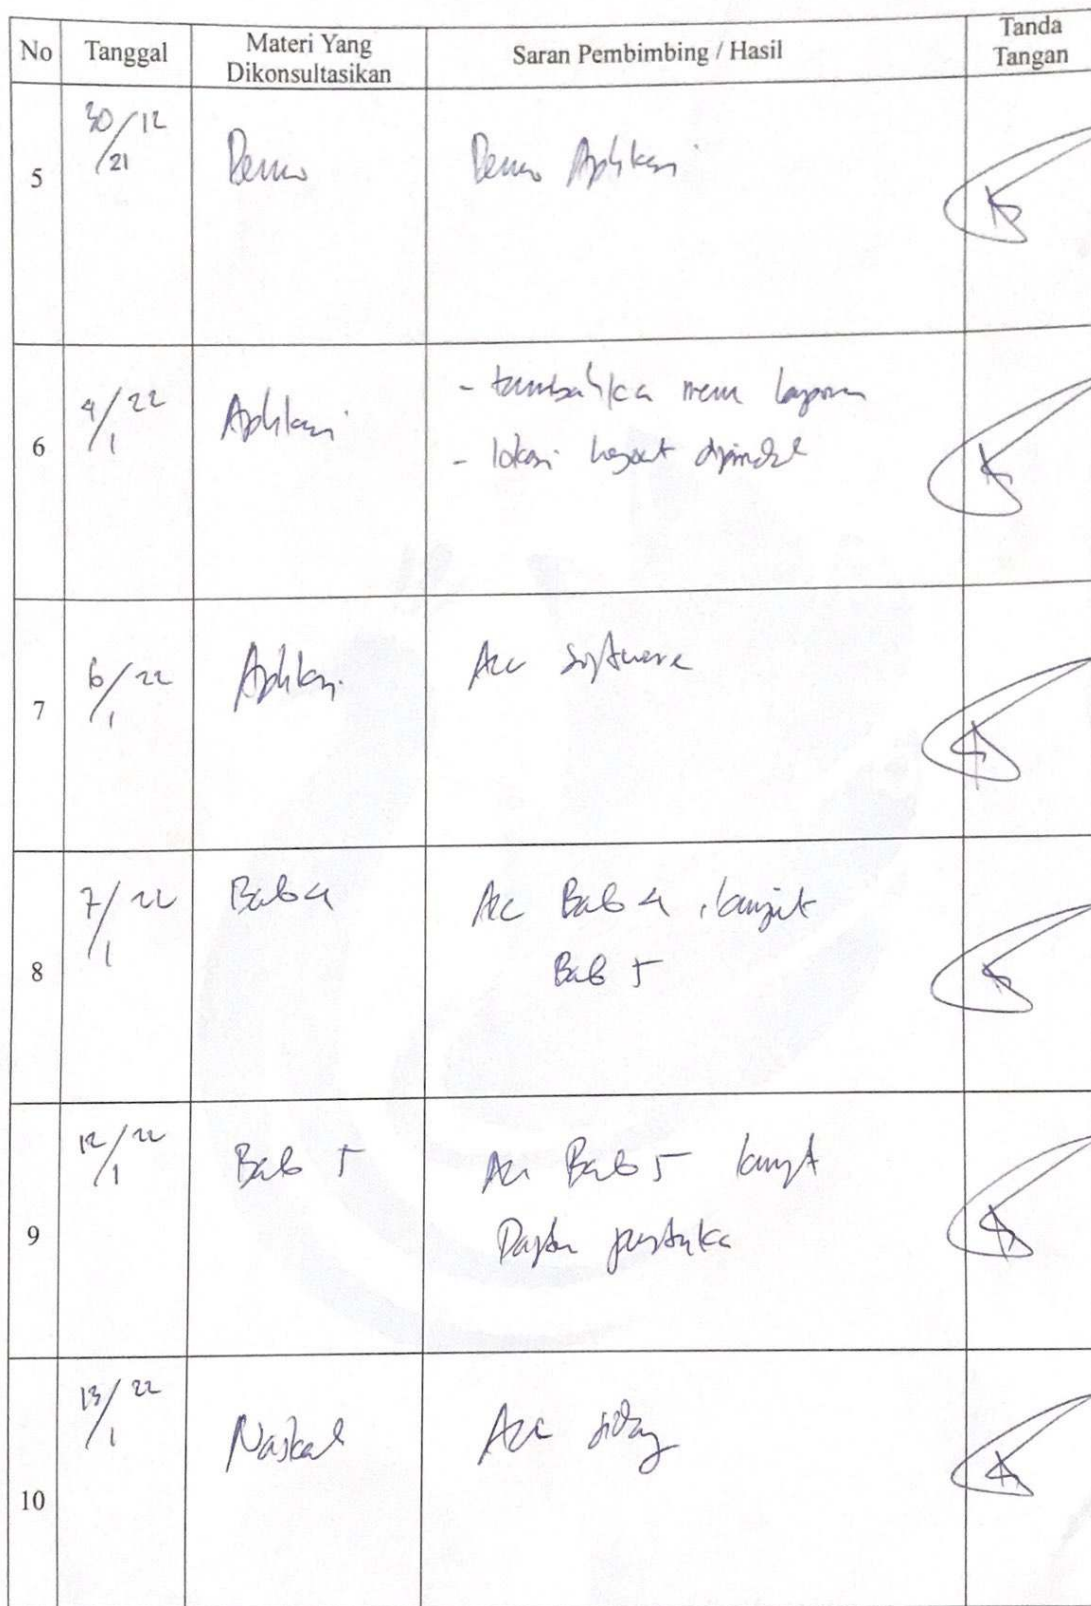 No Tanggal Materi Yang Dikonsultasikan Saran Pembimbing / Hasil Tanda Tangan
5 30/12/21 Demo Demo Aplikasi
6 4/1 22 Aplikasi - tambahkan menu laporan
- lokasi dipindah
7 6/1 22 Aplikasi Acc software
8 7/1 22 Bab 4 Acc Bab 4, lanjut
Bab 5
9 12/1 22 Bab 5 Acc Bab 5 lanjut
Daftar pustaka
10 13/1 22 Naskah Acc sidang